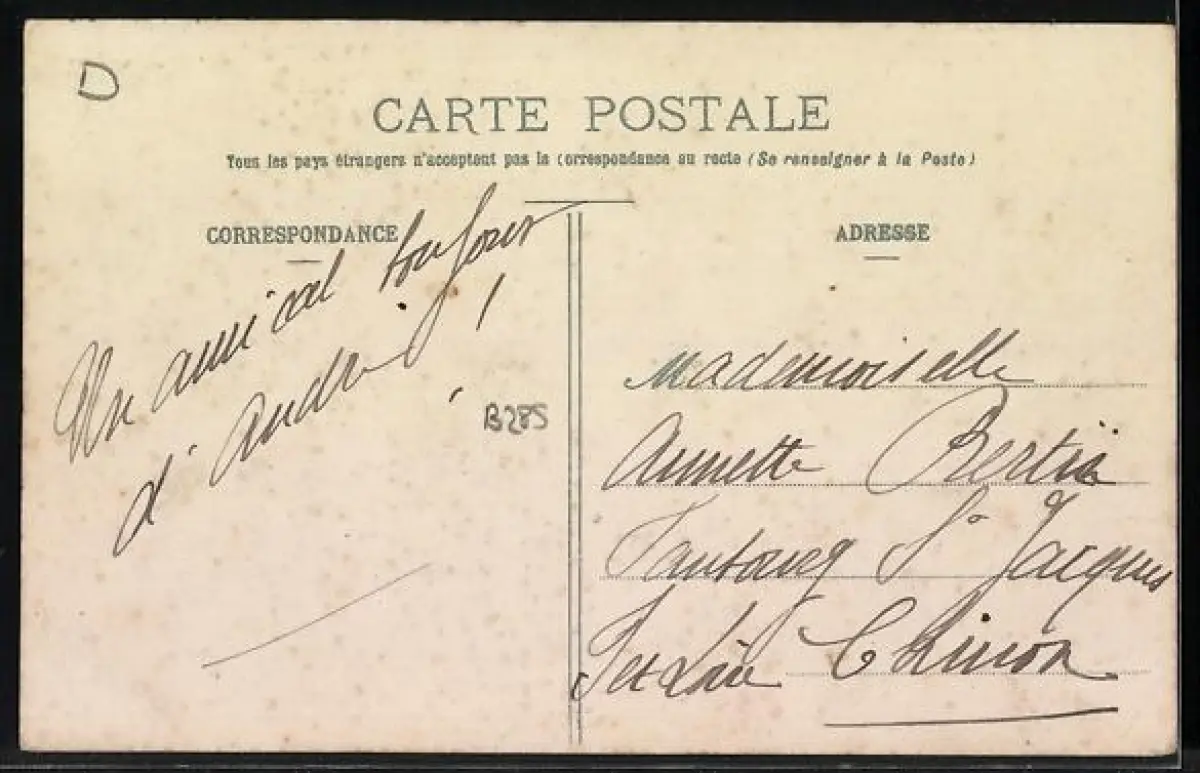 D
CARTE POSTALE
Tous les pays étrangers n'acceptent pas la Correspondance au recto (Se renseigner à la Poste)
CORRESPONDANCE
ADRESSE
Un amical bonjour
d'André !
B285
Mademoiselle
Annette Bertin
Faubourg St Jacques
Chinon